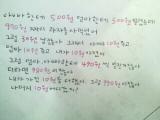 아빠한테 500원 엄마한테 500원 빌렸는데
970원 짜리 과자를 사먹었어
그럼 30원 남잖아 그래서 아빠 10원 주고
엄마 10원 주고 내가 10원 가졌어
그럼 엄마, 아빠한테 각각 490원 씩 빌린거잖아
더하면 980원 이잖아
내가 가진 10원을 더하면 990원 이잖아
나머지 10원 어디갔지?